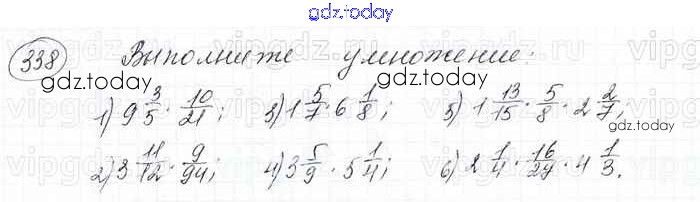 gdz.today
338 Выполните умножение:
gdz.today
1) 9 3/5 · 10/21; 3) 1 5/7 · 6 1/8; 5) 1 13/15 · 5/8 · 2 2/7;
gdz.today
2) 3 11/12 · 9/94; 4) 3 5/9 · 5 1/4; 6) 2 1/4 · 16/27 · 4 1/3.
gdz.today